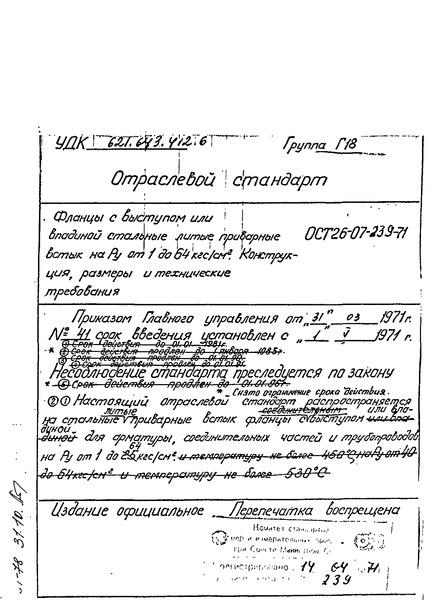 УДК 621.643.412.6 Группа Г18
Отраслевой стандарт
Фланцы с выступом или
впадиной стальные литые приварные
встык на Ру от 1 до 64 кгс/см². Конструк-
ция, размеры и технические
требования
ОСТ26-07-239-71
Приказом Главного управления от "31" 03 1971г.
№ 41 срок введения установлен с "1" V 1971г.
① Срок действия до 01.01.
* ② Срок действия продлен до 1 января 1985г.
③ Срок действия продлен до 01.01.
Срок действия продлен до 01.01.
Несоблюдение стандарта преследуется по закону
* Срок действия продлен до 01.01.96г.
* Снято ограничение срока действия.
② ① Настоящий отраслевой стандарт распространяется
литые
на стальные приварные встык фланцы с выступом или впа-
диной для арматуры, соединительных частей и трубопроводов
64
на Ру от 1 до 25 кгс/см² и температуру не более 450°С на Ру от 40
до 64 кгс/см² и температуру не более 530°С
Издание официальное Перепечатка воспрещена
Комитет стандартов,
мер и измерительных
при Совете Министров
регистрировано 14 04 71
239
31.10.